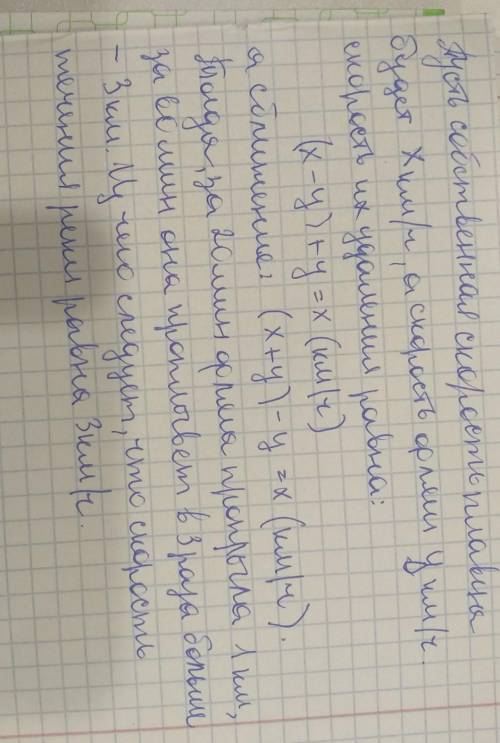 Пусть собственная скорость пловца
будет x км/ч, а скорость фляги y км/ч.
скорость их удаления равна:
(x - y) + y = x (км/ч)
а сближение: (x + y) - y = x (км/ч).
Тогда, за 20 мин фляга проплыла 1 км,
за 60 мин она проплывет в 3 раза больше
- 3 км. Из чего следует, что скорость
течения реки равна 3 км/ч.